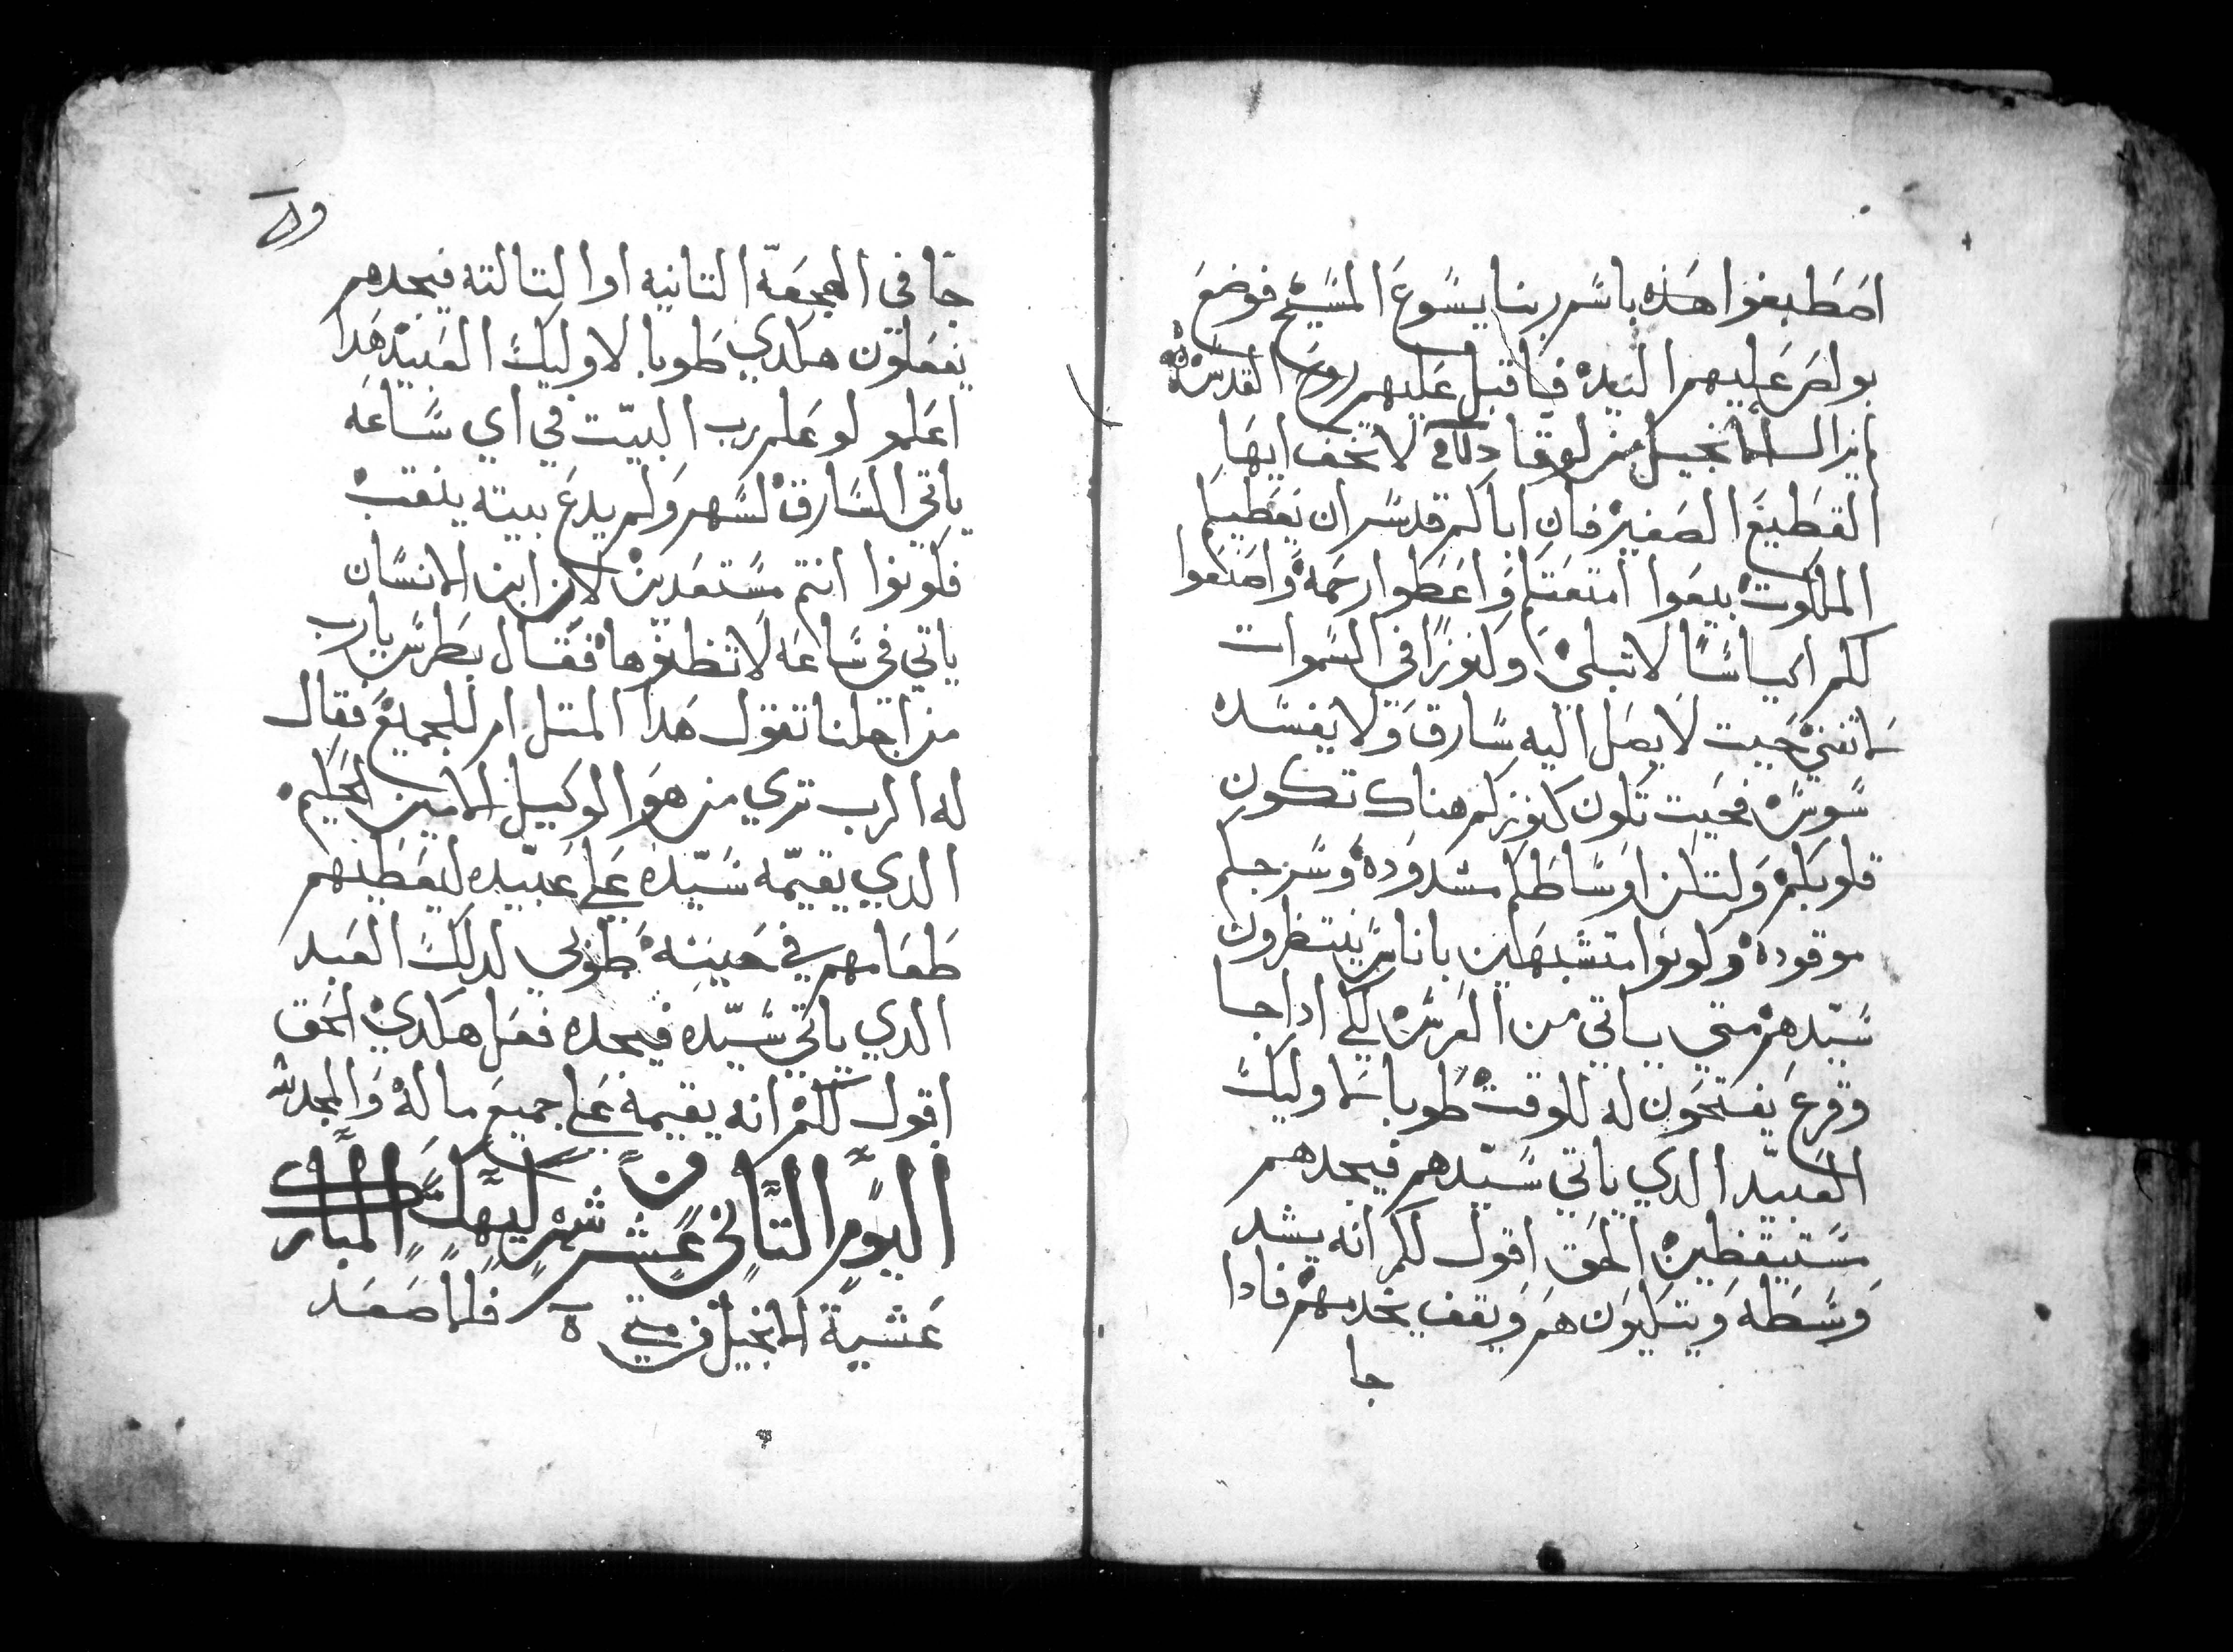 اصطبغوا هذه باسم ربنا يسوع المسيح فوضع
بولص عليهم اليده فاقبل عليهم روح القدس
الانجيل من لوقا لا تخف ايها
القطيع الصغير فان اباكم قد سر ان يعطيكم
الملكوت بيعوا امتعتكم واعطوا رحمة واصنعوا
لكم اكياسا لا تبلي وكنوزا في السموات
لا تفني حيت لا يصل اليه سارق ولا يفسده
سوس فحيت تكون كنوزكم هناك تكون
قلوبكم ولتكن اوساطكم مشدوده وسرجكم
موقوده وكونوا متشبهين باناس ينتظرون
سيدهم متي ياتي من العرس لكي ادا جا
وقرع يفتحون له للوقت طوبا لاوليك
العبيد الدي ياتي سيدهم فيجدهم
مستيقظين الحق اقول لكم انه يشد
وسطه ويتكيون هم ويقف يخدمهم فادا
جا
جا في الهجعة التانيه او التالته فيجدهم
يفعلون هكدي طوبا لاوليك العبيد هدا
اعلمو لو علم رب البيت في اي ساعه
ياتي السارق لسهر ولم يدع بيته ينقب
فكونوا انتم مستعدين لان ابن الانسان
ياتي في ساعه لا تظنوها فقال بطرس يارب
من اجلنا تقول هدا المتل ام للجميع فقال
له الرب تري من هو الوكيل الامين الحكيم
الدي يقيمه سيده علي عبيده ليعطيهم
طعامهم في حينه طوبي لدلك العبد
الدي ياتي سيده فيجده فعل هكدي الحق
اقول لكم انه يقيمه علي جميع ماله والمجد لله
اليوم التاني عشر شهر كيهك المبارك
عشية الانجيل من متي ه فلما صعد